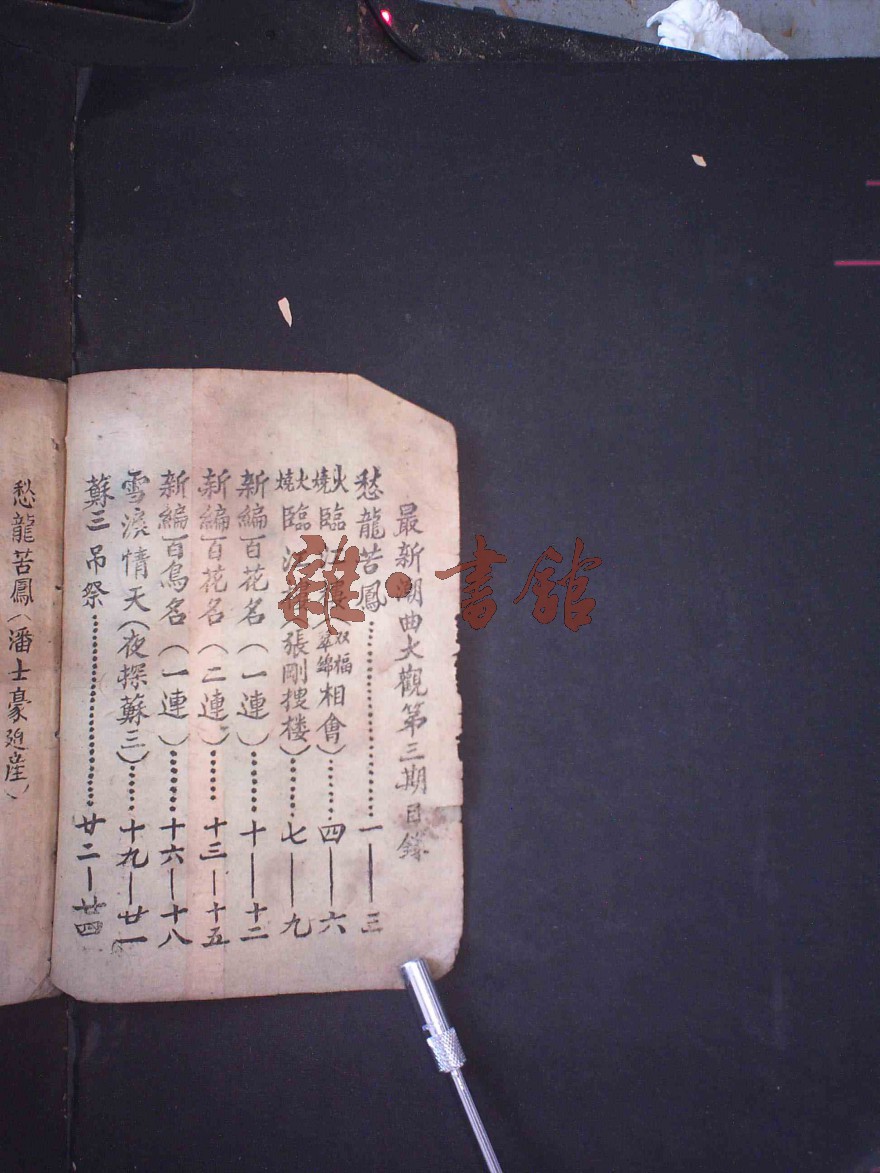 最新潮曲大觀第三期目錄
愁龍苦鳳……………………一——三
火燒臨江樓（双福翠錦相會）……四——六
火燒臨江樓（張剛搜楼）……七——九
新編百花名（一連）……十——十二
新編百花名（二連）……十三——十五
新編百鳥名（一連）……十六——十八
雪淚情天（夜探蘇三）……十九——廿一
蘇三吊祭……………………廿二——廿四
愁龍苦鳳（潘士豪迫產）
雜·書館